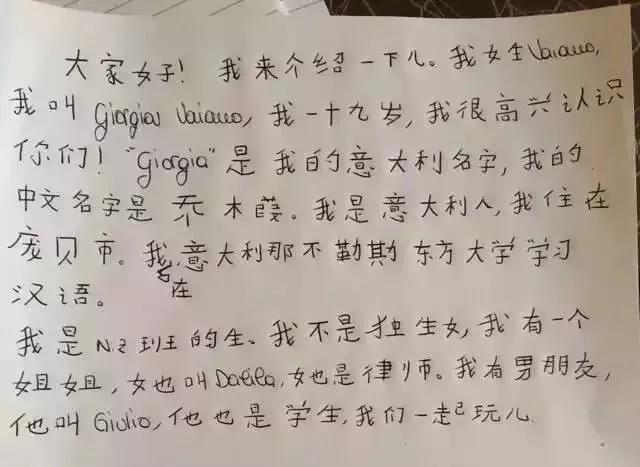 大家好！我来介绍一下儿。我姓Vaiano,
我叫 Giorgia Vaiano, 我一十九岁, 我很高兴认识
你们！"Giorgia"是我的意大利名字, 我的
中文名字是乔木葭。我是意大利人, 我住在
庞贝市。我在意大利那不勒斯东方大学学习
汉语。
我是 N.2 班的生。我不是独生女, 我有一个
姐姐, 她叫Dalila, 她是律师。我有男朋友,
他叫 Giulio, 他也是学生, 我们一起玩儿